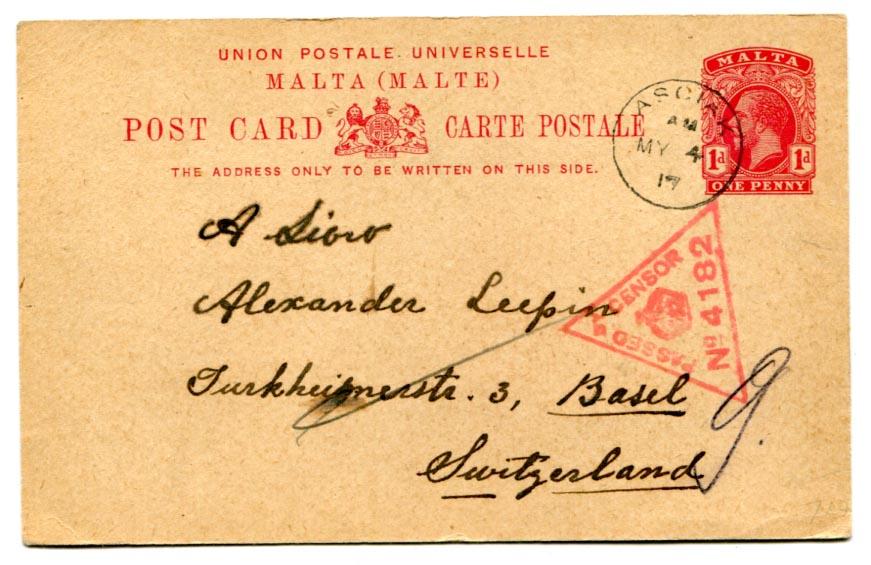 UNION POSTALE UNIVERSELLE
MALTA (MALTE)
POST CARD CARTE POSTALE
THE ADDRESS ONLY TO BE WRITTEN ON THIS SIDE.
MALTA
1d 1d
ONE PENNY
AM
MY 4
17
PASSED BY CENSOR
No 4182
A Sioro
Alexander Leepin
Turkheimerstr. 3, Basel
Switzerland
9.